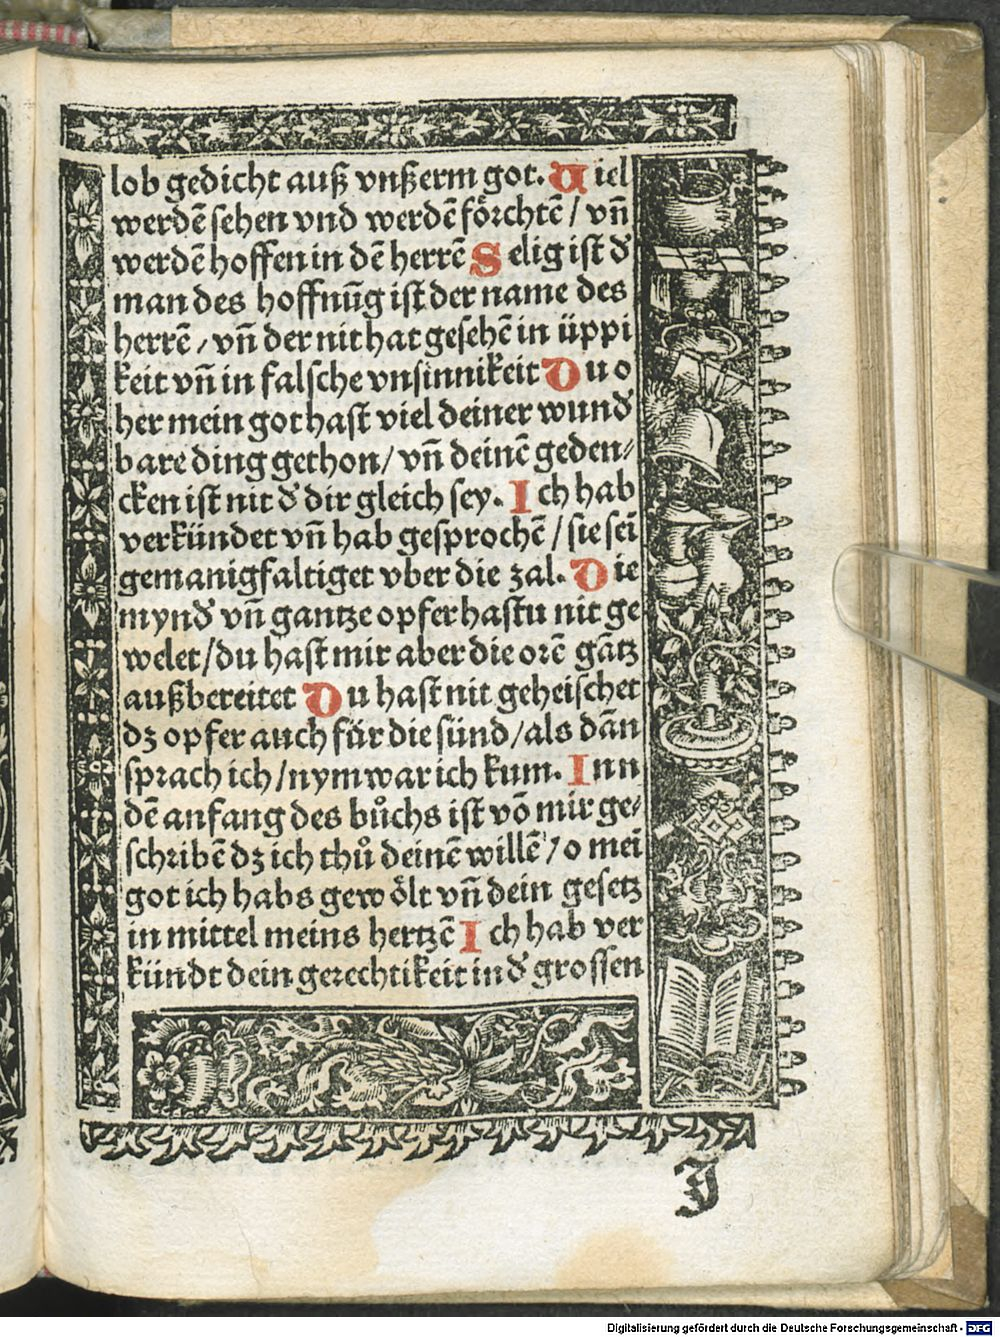 lob gedicht auß vnßerm got. Uiel
werdē sehen vnd werdē förchtē / vn̄
werdē hoffen in dē herrē Selig ist ď
man des hoffnūg ist der name des
herrē / vn̄ der nit hat gesehē in üppi
keit vn̄ in falsche vnsinnikeit Du o
her mein got hast viel deiner wunď
bare ding gethon / vn̄ deinē geden⸗
cken ist nit ď dir gleich sey. Ich hab
verkündet vn̄ hab gesprochē / sie sei
gemanigfaltiget vber die zal. Die
mynď vn̄ gantze opfer hastu nit ge
welet / du hast mir aber die orē gātz
außbereitet Du hast nit geheischet
dz opfer auch für die sünd / als dān
sprach ich / nym war ich kum. Inn
dē anfang des bůchs ist vō mir ge⸗
schribē dz ich thů deinē willē / o meī
got ich habs gewölt vn̄ dein gesetz
in mittel meins hertzē Ich hab ver
kündt dein gerechtikeit in ď grossen
J
Digitalisierung gefördert durch die Deutsche Forschungsgemeinschaft - DFG